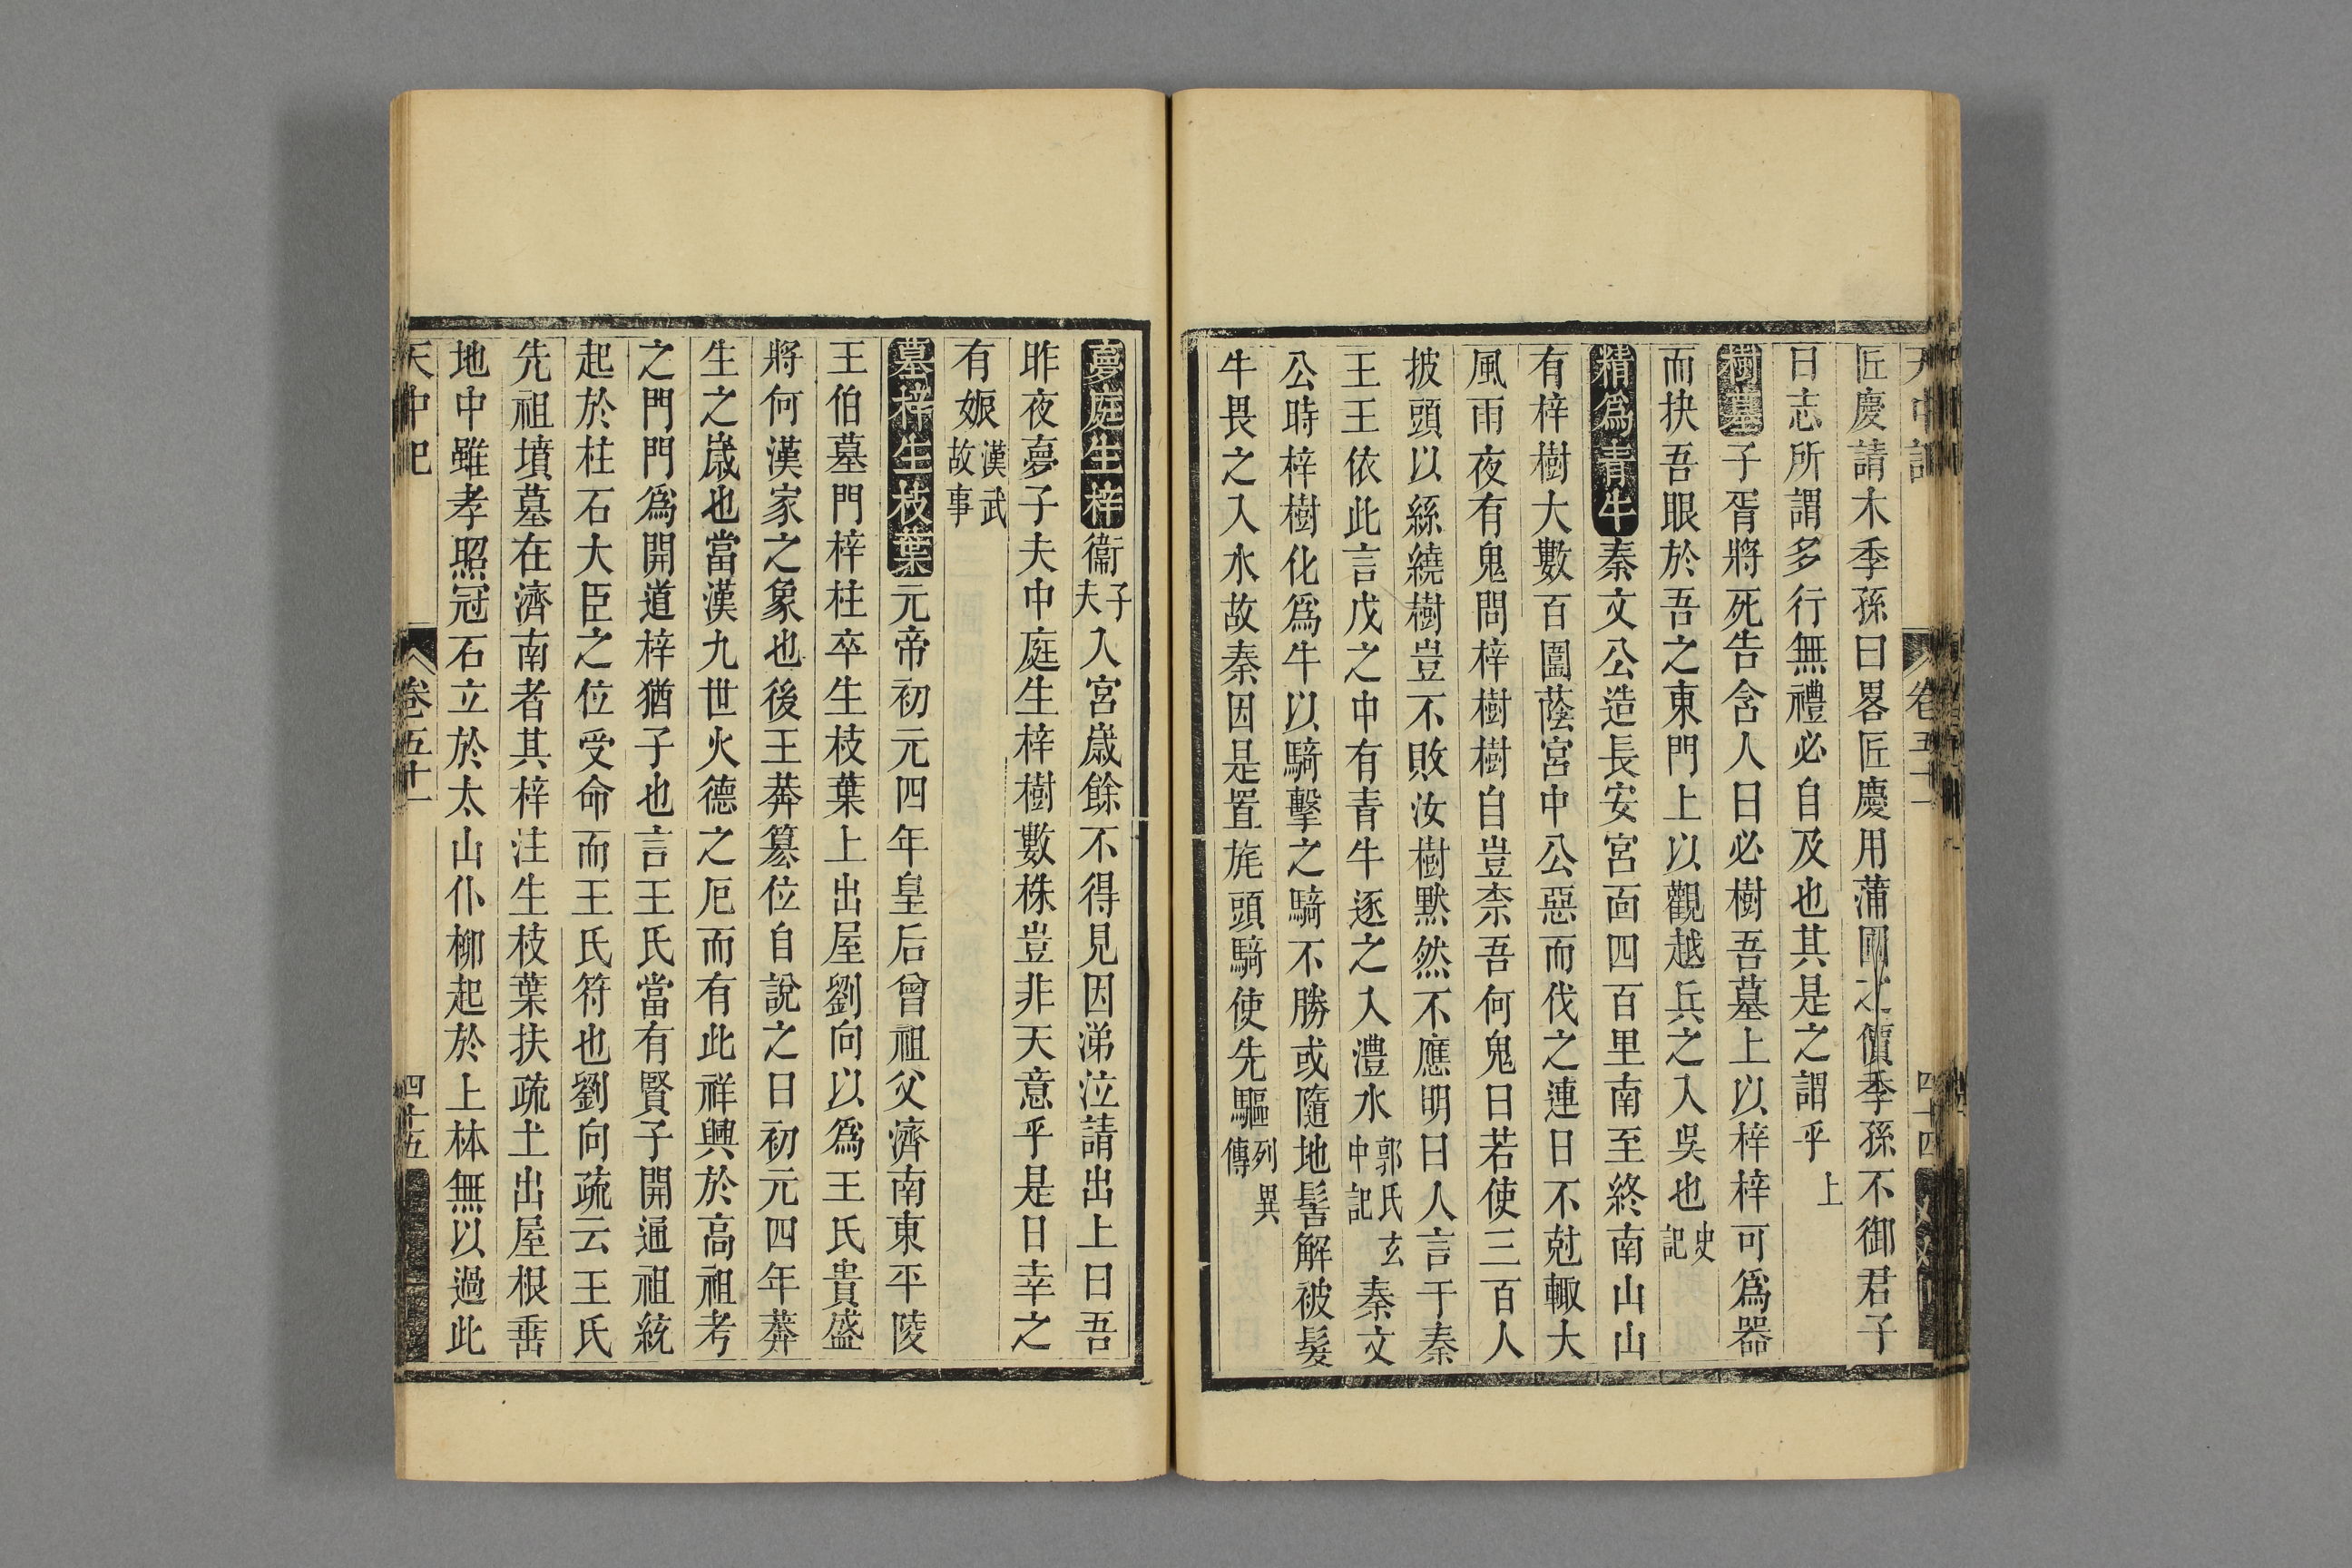 天中記 卷五十一 四十四
匠慶請木季孫曰畧匠慶用蒲圃之檟季孫不御君子
曰志所謂多行無禮必自及也其是之謂乎上
樹墓子胥將死告舍人曰必樹吾墓上以梓梓可爲器
而抉吾眼於吾之東門上以觀越兵之入吳也史記
精爲青牛秦文公造長安宮面四百里南至終南山山
有梓樹大數百圍蔭宮中公惡而伐之連日不尅輙大
風雨夜有鬼問梓樹樹自豈柰吾何鬼曰若使三百人
披頭以絲繞樹豈不敗汝樹黙然不應明日人言于秦
王王依此言戊之中有青牛逐之入澧水郭氏玄中記秦文
公時梓樹化爲牛以騎擊之騎不勝或隨地髻解被髮
牛畏之入水故秦因是置旄頭騎使先驅列異傳
夢庭生梓衞子夫入宮歲餘不得見因涕泣請出上曰吾
昨夜夢子夫中庭生梓樹數株豈非天意乎是日幸之
有娠漢武故事
墓梓生枝葉元帝初元四年皇后曾祖父濟南東平陵
王伯墓門梓柱卒生枝葉上出屋劉向以爲王氏貴盛
將何漢家之象也後王莽簒位自說之曰初元四年莽
生之歲也當漢九世火德之厄而有此祥興於高祖考
之門門爲開道梓猶子也言王氏當有賢子開通祖統
起於柱石大臣之位受命而王氏符也劉向疏云王氏
先祖墳墓在濟南者其梓注生枝葉扶疏土出屋根垂
地中雖孝照冠石立於太山仆柳起於上林無以過此
天中記 卷五十一 四十五